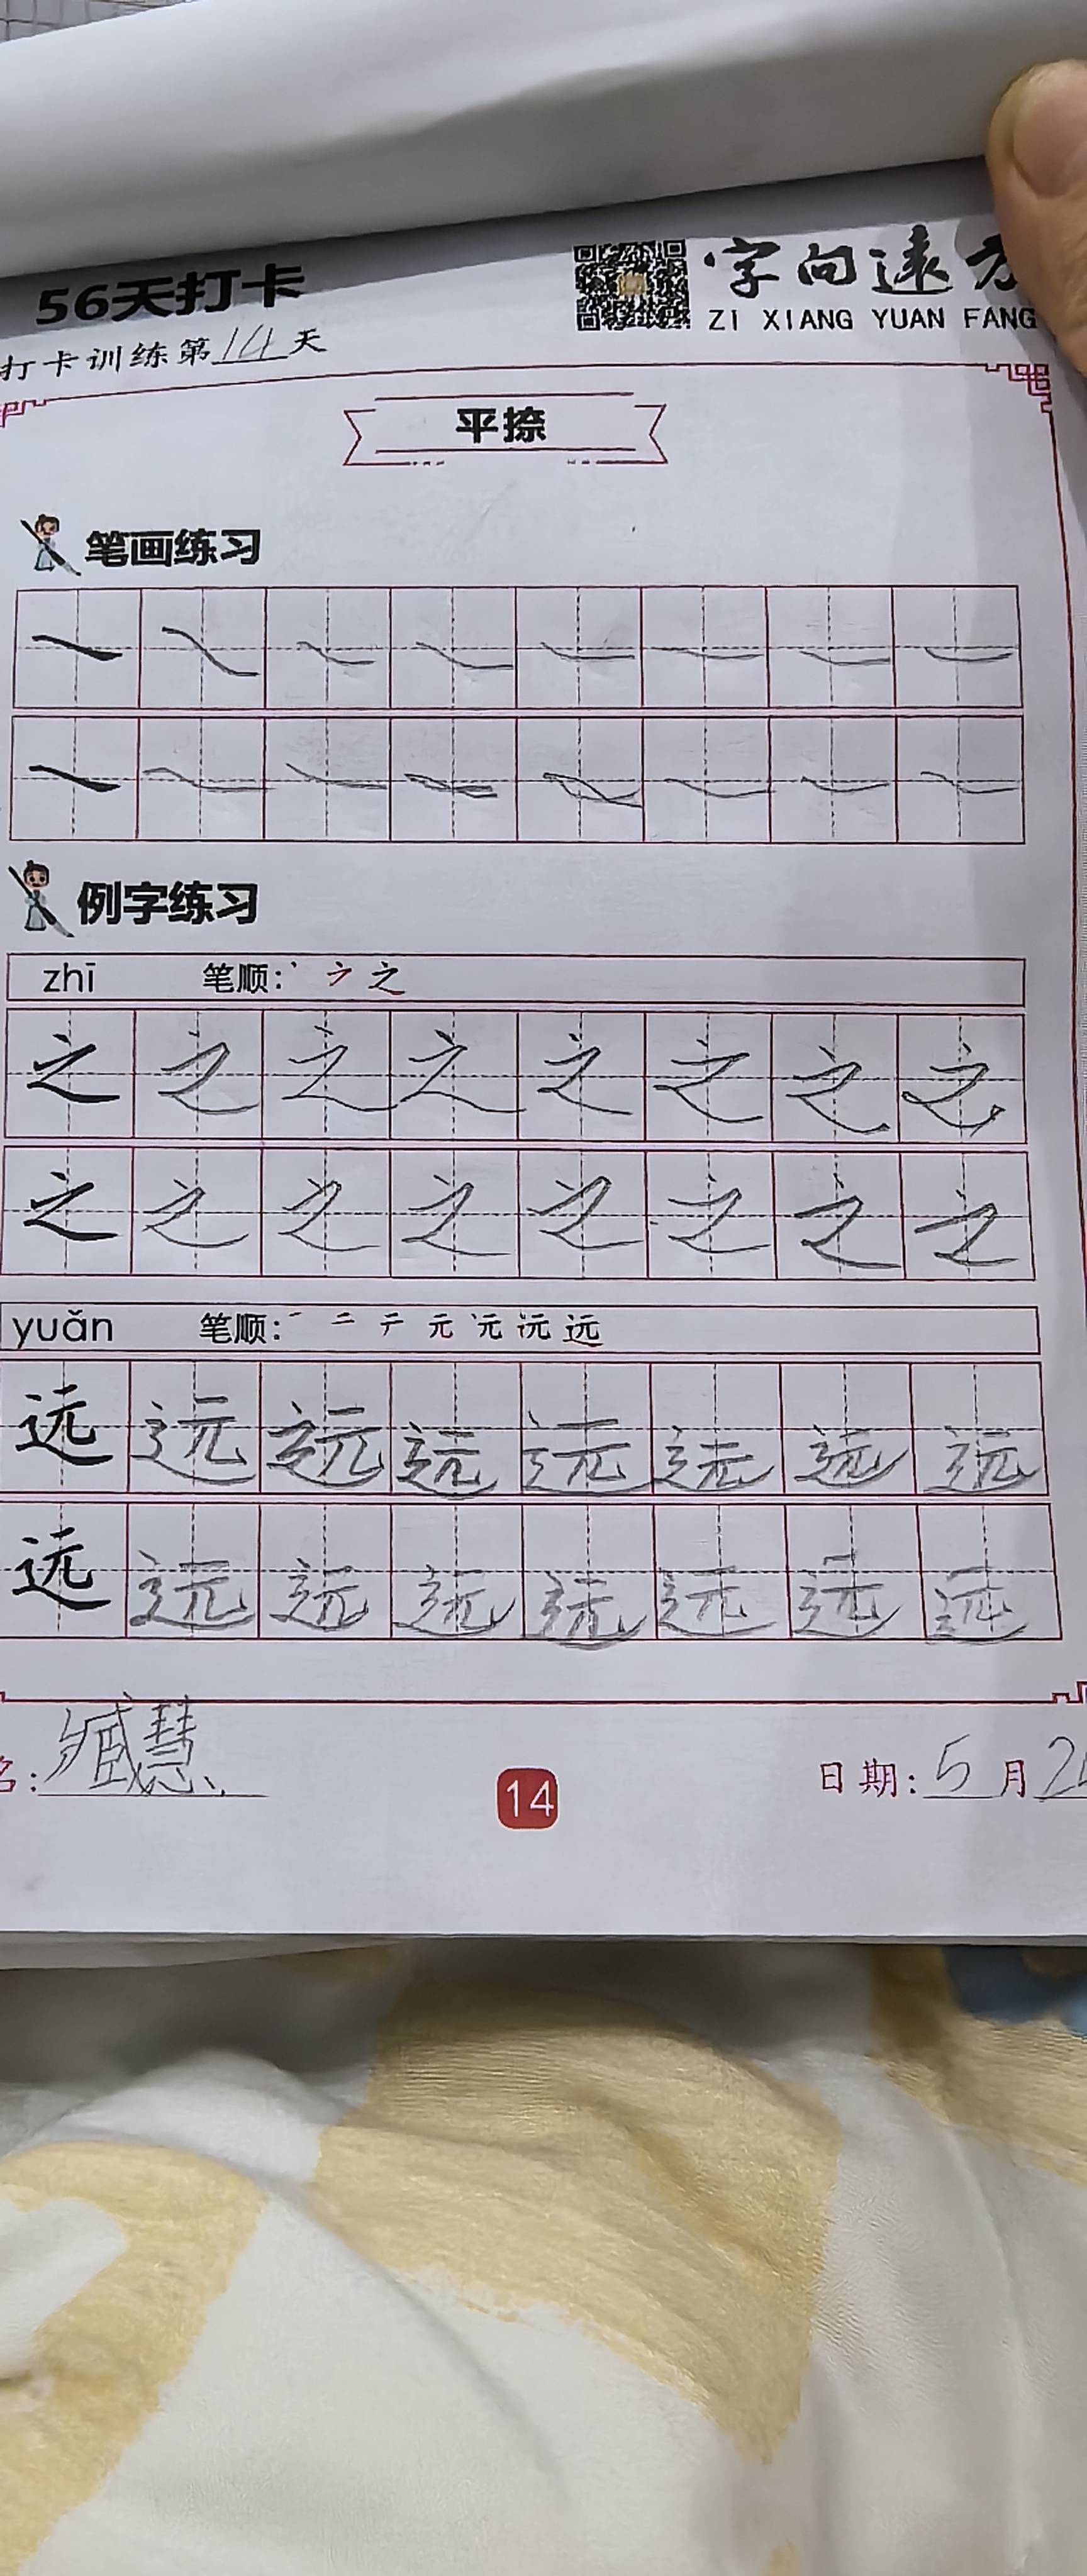 56天打卡
字向遠方
ZI XIANG YUAN FANG
打卡训练第14天
平捺
笔画练习
例字练习
zhī 笔顺: 丶 ㇇ 之
之 之 之 之 之 之 之 之
之 之 之 之 之 之 之 之
yuǎn 笔顺: 一 二 テ 元 远
远 远 远 远 远 远 远 远
远 远 远 远 远 远 远 远
名: 臧慧
14
日期: 5月2